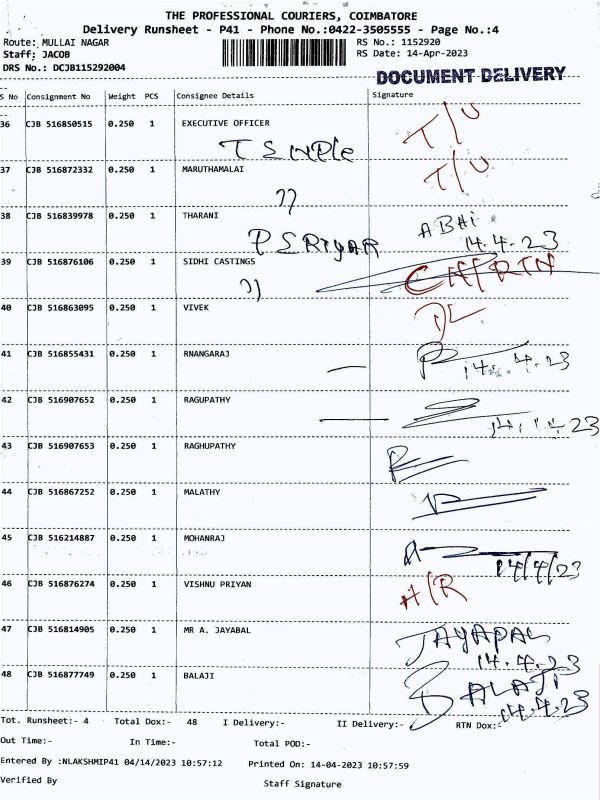 THE PROFESSIONAL COURIERS, COIMBATORE
Delivery Runsheet - P41 - Phone No.:0422-3505555 - Page No.:4
Route: MULLAI NAGAR RS No.: 1152920
Staff: JACOB RS Date: 14-Apr-2023
DRS No.: DCJB115292004
DOCUMENT DELIVERY
S No Consignment No Weight PCS Consignee Details Signature
36 CJB 516850515 0.250 1 EXECUTIVE OFFICER T/U
37 CJB 516872332 0.250 1 MARUTHAMALAI T/U
38 CJB 516839978 0.250 1 THARANI ABHI
14.4.23
39 CJB 516876106 0.250 1 SIDHI CASTINGS
40 CJB 516863095 0.250 1 VIVEK
41 CJB 516855431 0.250 1 RNANGARAJ 14.4.23
42 CJB 516907652 0.250 1 RAGUPATHY
43 CJB 516907653 0.250 1 RAGHUPATHY
44 CJB 516867252 0.250 1 MALATHY
45 CJB 516214887 0.250 1 MOHANRAJ 14/4/23
46 CJB 516876274 0.250 1 VISHNU PRIYAN H/R
47 CJB 516814905 0.250 1 MR A. JAYABAL JAYAPAL
14.4.23
48 CJB 516877749 0.250 1 BALAJI BALAJI
14.4.23
Tot. Runsheet:- 4 Total Dox:- 48 I Delivery:- II Delivery:- RTN Dox:-
Out Time:- In Time:- Total POD:-
Entered By :NLAKSHMIP41 04/14/2023 10:57:12 Printed On: 14-04-2023 10:57:59
Verified By Staff Signature